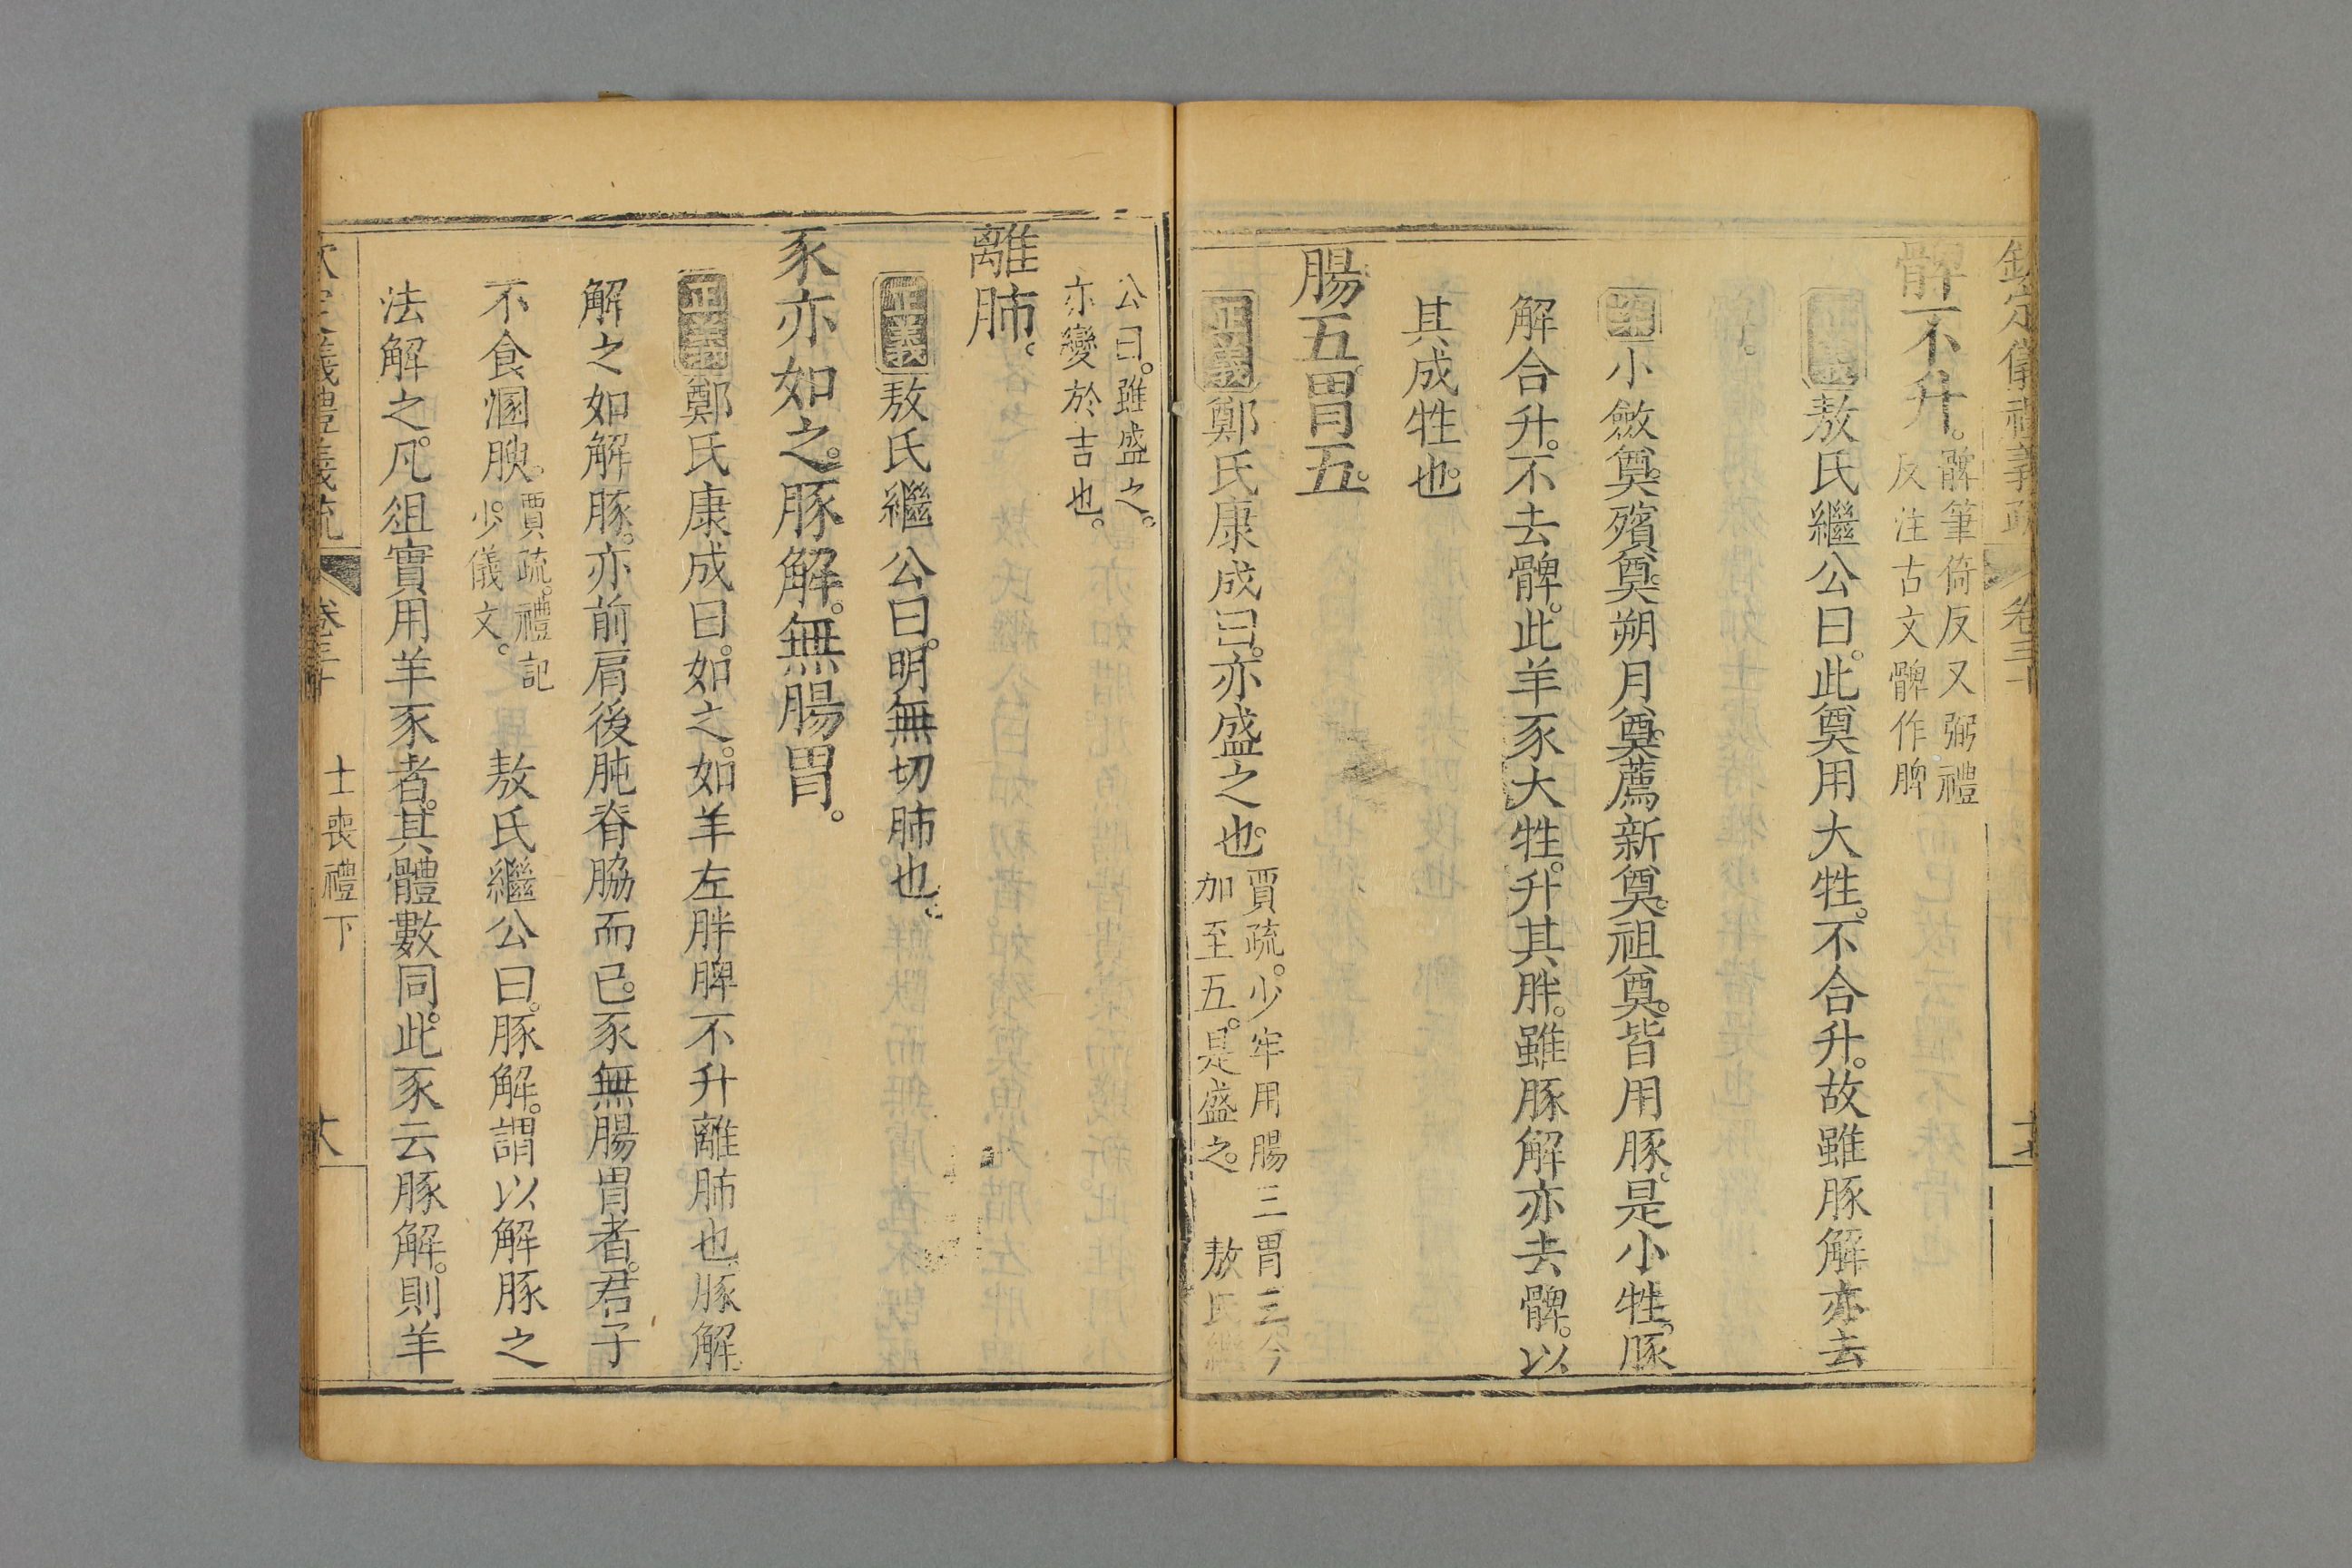 欽定儀禮義疏 卷三十
髀不升。髀筆倚反又弼禮
反注古文髀作脾
正義敖氏繼公曰。此奠用大牲。不合升。故雖豚解亦去
髀。
案小斂奠。殯奠。朔月奠。薦新奠。祖奠。皆用豚。是小牲。豚
解合升。不去髀。此羊豕大牲。升其胖。雖豚解亦去髀。以
其成牲也。
腸五。胃五。
正義鄭氏康成曰。亦盛之也。賈疏。少牢用腸三胃三。今
加至五。是盛之。 敖氏繼
公曰。雖盛之。
亦變於吉也。
離肺。
正義敖氏繼公曰。明無切肺也。
豕亦如之。豚解。無腸胃。
正義鄭氏康成曰。如之。如羊左胖髀不升離肺也。豚解。
解之如解豚。亦前肩後肫脊脇而已。豕無腸胃者。君子
不食溷腴。賈疏。禮記
少儀文。 敖氏繼公曰。豚解。謂以解豚之
法解之。凡俎實用羊豕者。其體數同。此豕云豚解。則羊
欽定儀禮義疏 卷三十 士喪禮下